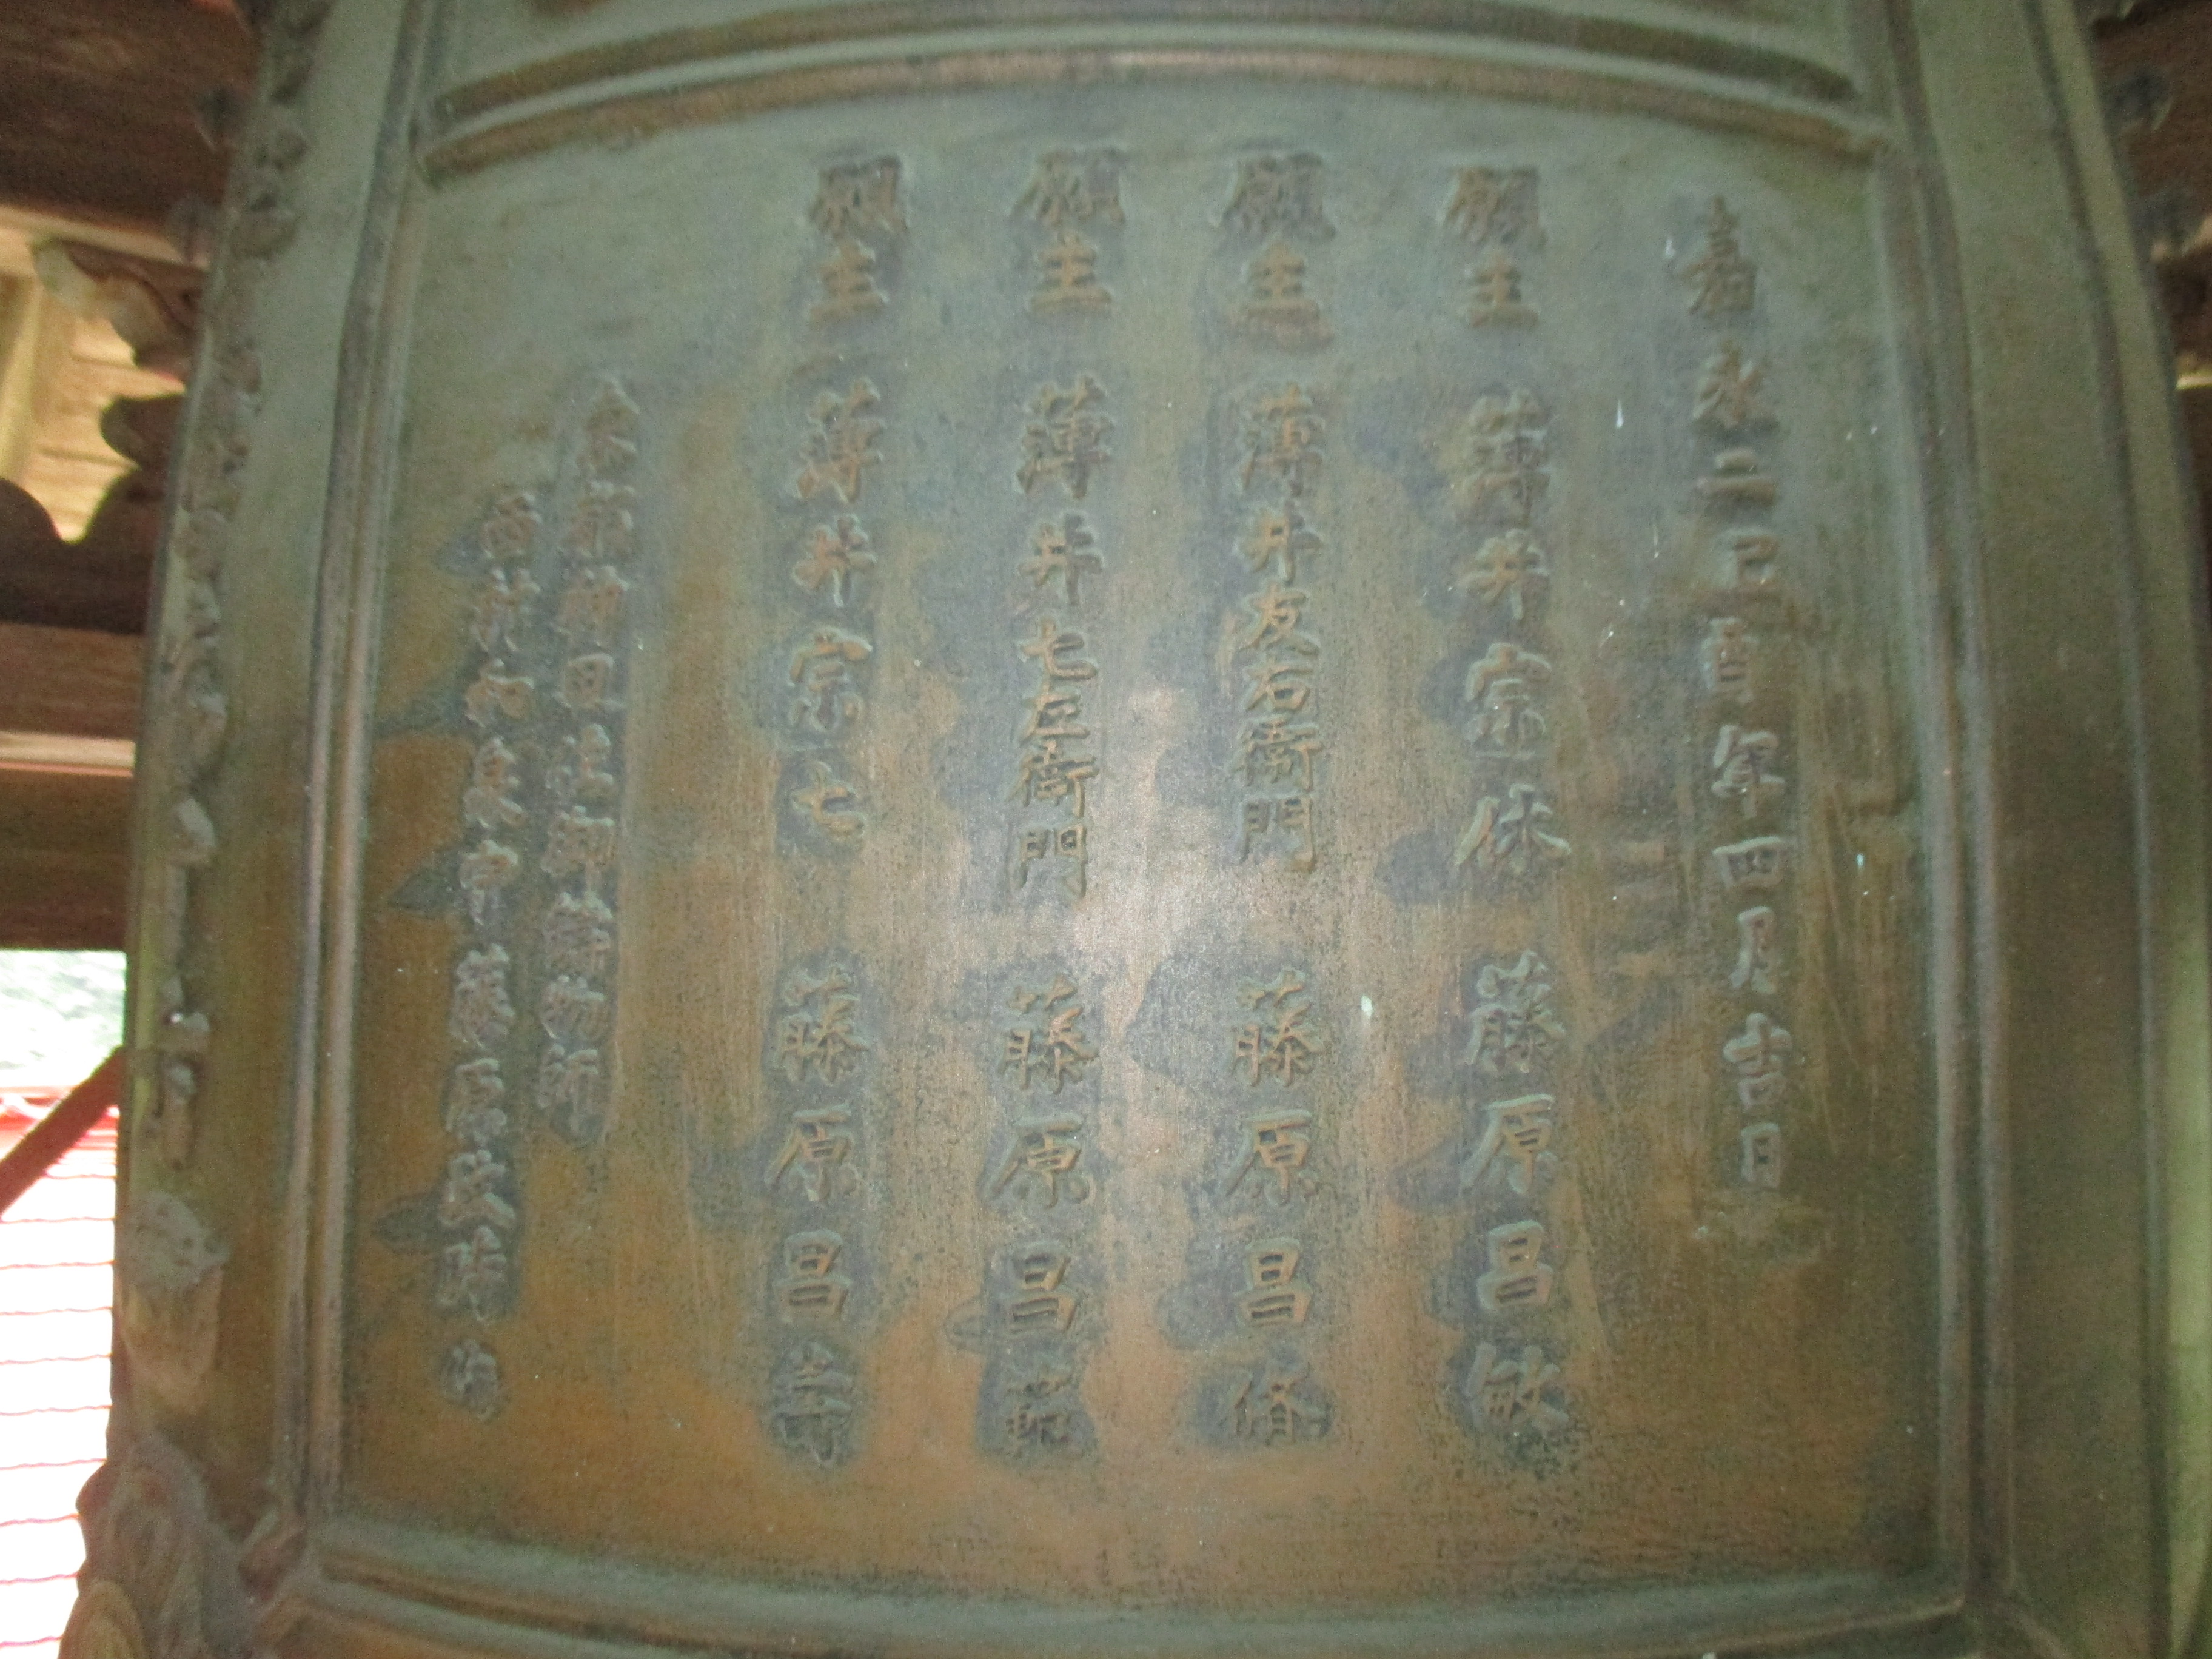 嘉永二己酉年四月吉日
願主 薄井宗休 藤原昌敏
願主 薄井友右衛門 藤原昌脩
願主 薄井七左衛門 藤原昌
願主 薄井宗七 藤原昌
神田住御鋳物所
西村和泉守藤原政時作